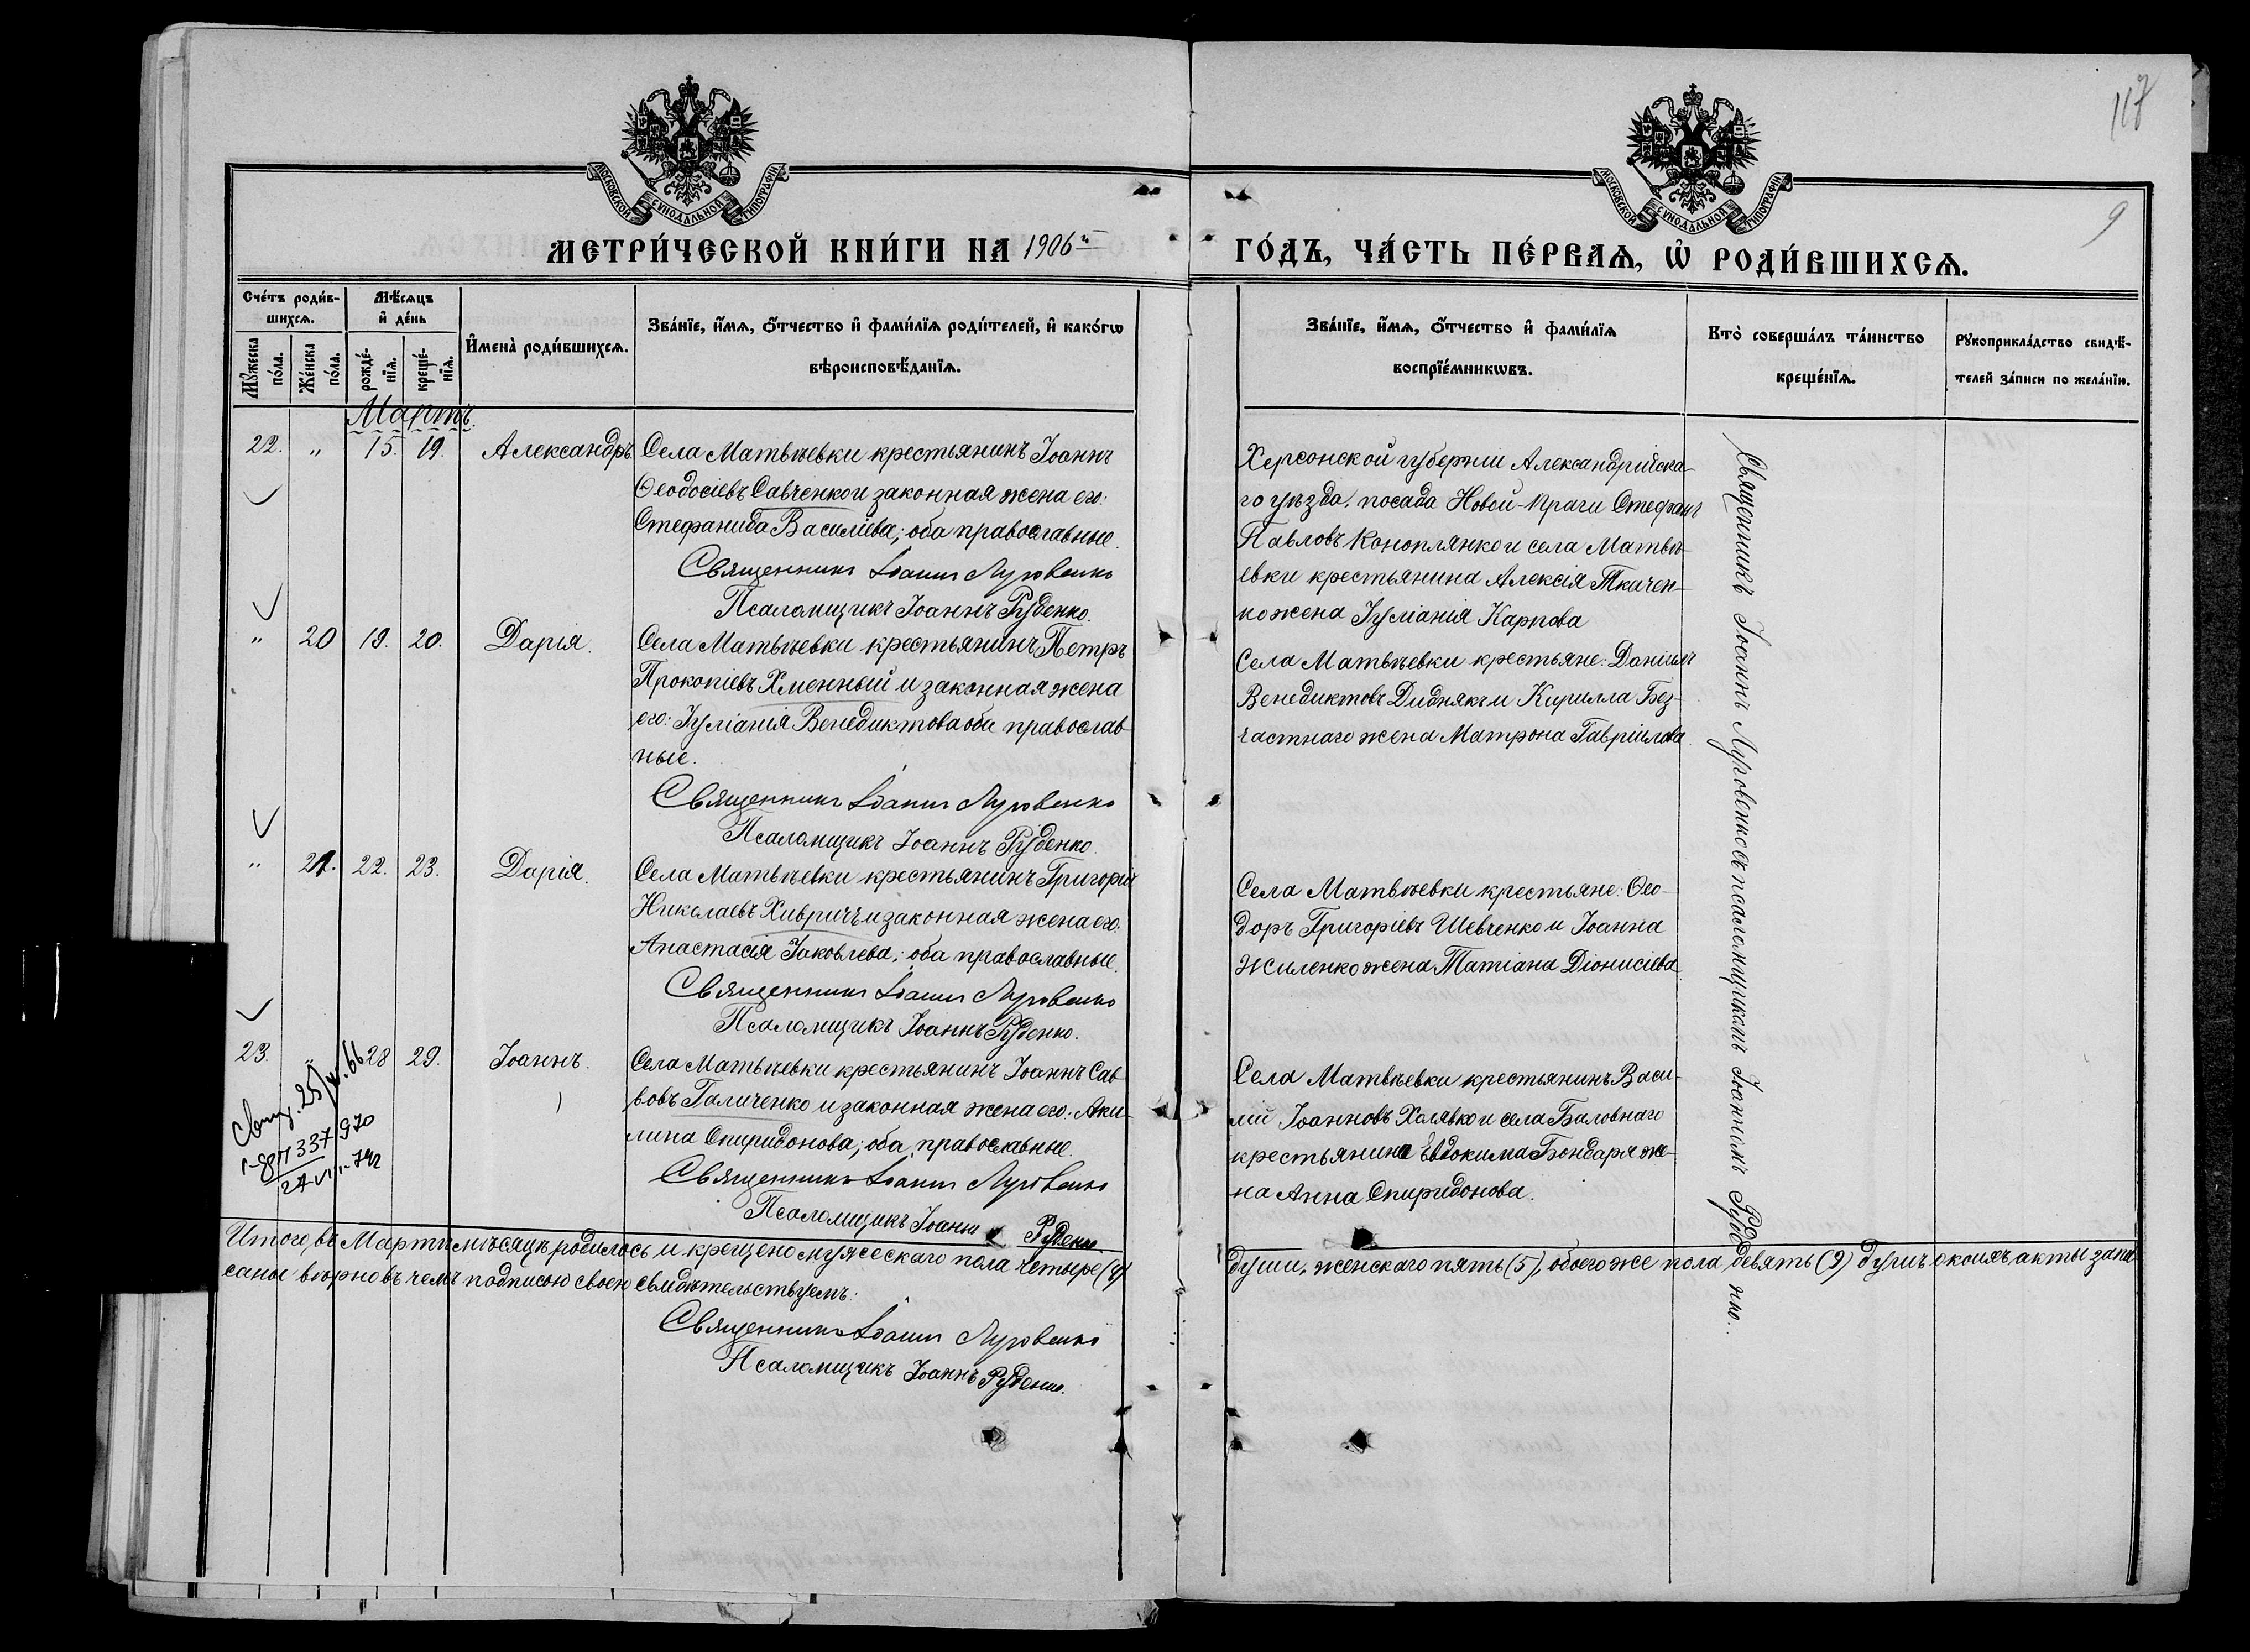 117
МОСКОВСКОЙ СѴНОДАЛЬНОЙ ТИПОГРАФІИ
МОСКОВСКОЙ СѴНОДАЛЬНОЙ ТИПОГРАФІИ
9
МЕТРИ́ЧЕСКОЙ КНИ́ГИ НА 1906й ГО́ДЪ, ЧА́СТЬ ПЕ́РВАѦ, Ѡ҆ РОДИ́ВШИХСѦ.
Сче́тъ роди́в-
шихсѧ.
Мꙋ́жеска
по́ла.
Же́нска
по́ла.
Мѣ́сѧцъ
и҆ де́нь
рожде́-
нїѧ.
креще́-
нїѧ.
И҆мена̀ роди́вшихсѧ.
Зва́нїе, и҆́мѧ, ѻ҆́тчество и҆ фами́лїѧ роди́телей, и҆ како́гѡ
вѣроисповѣ́данїѧ.
Зва́нїе, и҆́мѧ, ѻ҆́тчество и҆ фами́лїѧ
воспрїе́мникѡвъ.
Кто̀ соверша́лъ та́инство
креще́нїѧ.
Рꙋкоприкла́дство свидѣ́-
телей за́писи по жела́нїю.
Мартъ.
22. " 15. 19. Александръ.
Села Матвѣевки крестьянинъ Іоаннъ
Ѳеодосіевъ Савченко и законная жена его:
Стефанида Василіева; оба православные.
Священникъ Іоаннъ Луговенко
Псаломщикъ Іоаннъ Руденко.
Херсонской губерніи Александрійска-
го уѣзда, посада Новой-Праги Стефанъ
Павловъ Коноплянко и села Матвѣ-
евки крестьянина Алексія Ткачен-
ко жена Іуліанія Карпова
" 20 19. 20. Дарія.
Села Матвѣевки крестьянинъ Петръ
Прокопіевъ Хменный и законная жена
его: Іуліанія Венедиктова оба православ
ные.
Священникъ Іоаннъ Луговенко
Псаломщикъ Іоаннъ Руденко.
Села Матвѣевки крестьяне: Даніилъ
Венедиктовъ Диднякъ и Кирилла Без-
частнаго жена Матрона Гавріилова.
" 21. 22. 23. Дарія.
Села Матвѣевки крестьянинъ Григорій
Николаевъ Хивричъ и законная жена его:
Анастасія Іаковлева; оба православные.
Священникъ Іоаннъ Луговенко
Псаломщикъ Іоаннъ Руденко.
Села Матвѣевки крестьяне: Ѳео-
доръ Григоріевъ Шевченко и Іоанна
Жиленко жена Татіана Діонисіева
23. " 28 29. Іоаннъ.
Села Матвѣевки крестьянинъ Іоаннъ Сав
вовъ Галиченко и законная жена его: Аки-
лина Спиридонова; оба православные.
Священникъ Іоаннъ Луговенко
Псаломщикъ Іоаннъ Руденко.
Села Матвѣевки крестьянинъ Васи-
лій Іоанновъ Халявко и села Баловнаго
крестьянина Евдокима Бондаря же-
на Анна Спиридонова.
Священникъ Іоаннъ Луговенко съ псаломщикомъ Іоанномъ Руденко.
Итого, въ Мартѣ мѣсяцѣ родилось и крещено мужескаго пола четыре (4) души, женскаго пять (5), обоего же пола девять (9) душъ о коихъ акты запи
саны вѣрно въ чемъ подписью своею свидѣтельствуемъ:
Священникъ Іоаннъ Луговенко
Псаломщикъ Іоаннъ Руденко.